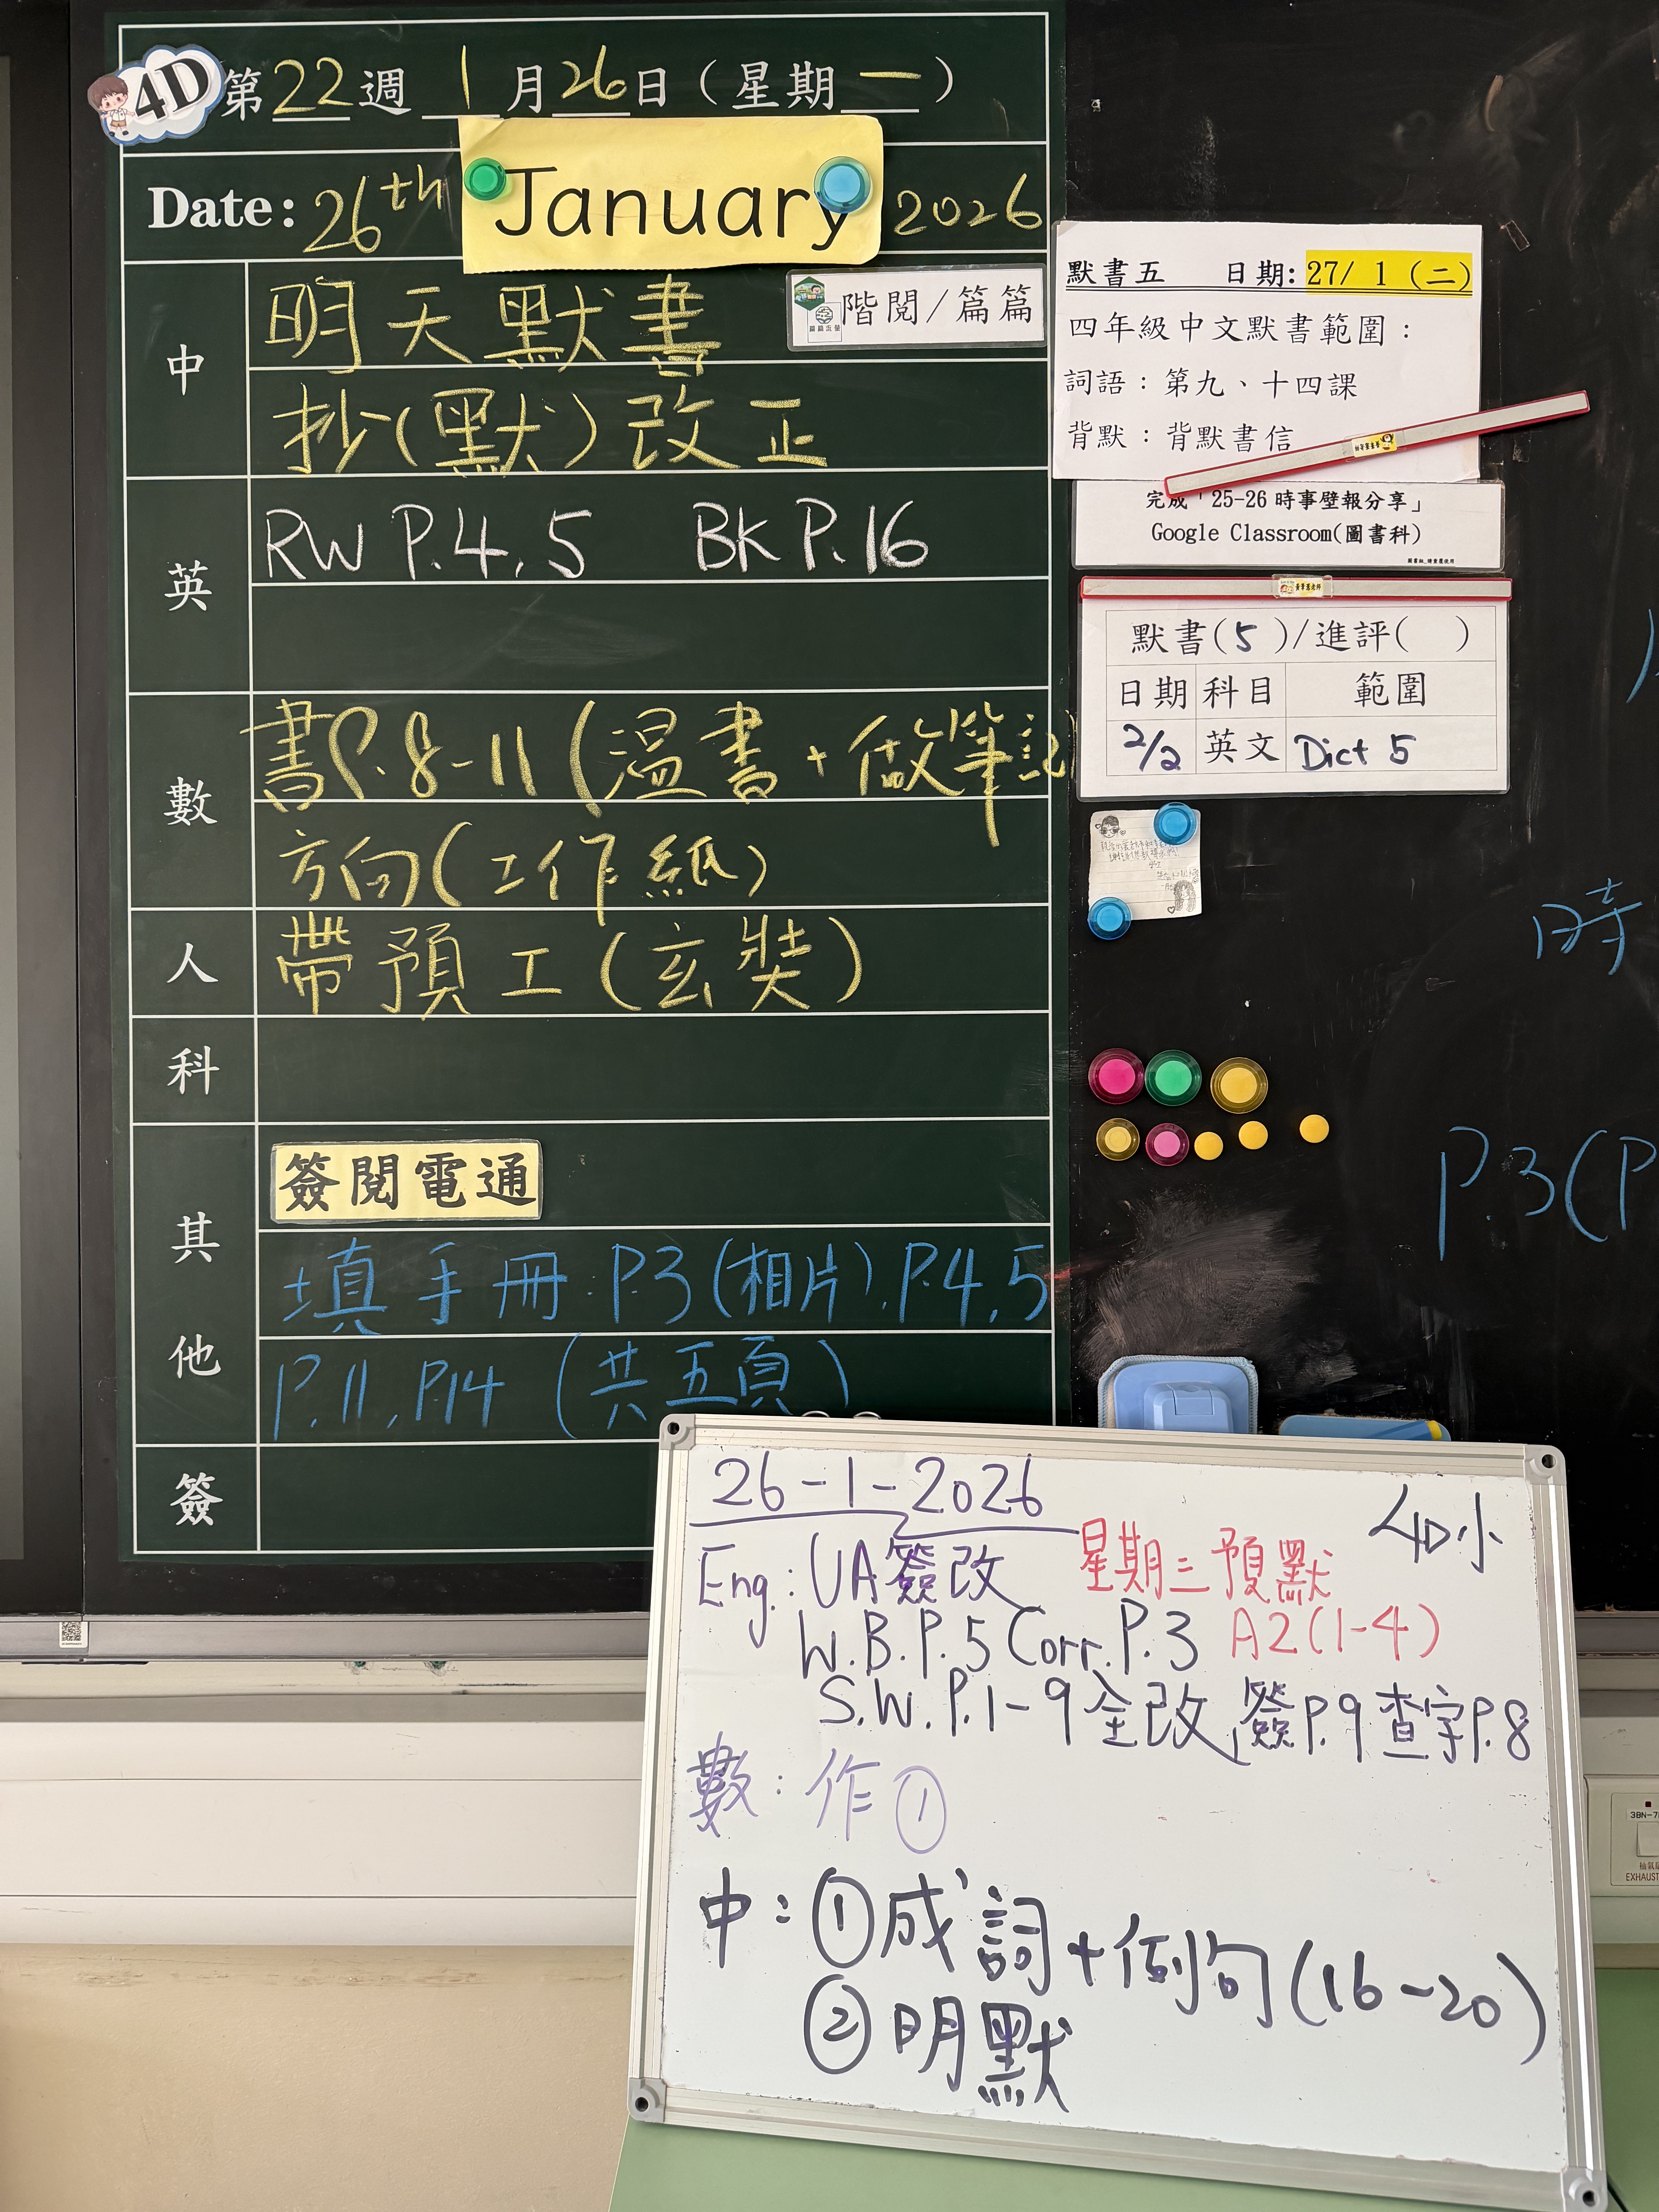 4D 第22週 1月26日(星期一)
Date: 26th January 2026
中
明天默書
階閱/篇篇
抄(默)改正
英
RW P.4,5 BK P.16
數
書P.8-11(溫書+做筆記)
方向(工作紙)
人
帶預工(玄奘)
科
其他
簽閱電通
填手冊:P.3(相片),P.4,5
P.11,P.14(共五頁)
簽
默書五 日期:27/ 1 (二)
四年級中文默書範圍:
詞語:第九、十四課
背默:背默書信
完成「25-26 時事壁報分享」
Google Classroom(圖書科)
默書(5)/進評( )
日期 科目 範圍
2/2 英文 Dict 5
時
P.3(P
26-1-2026
4D小
Eng.: UA簽改 星期三預默
W.B.P.5 Corr.P.3 A2(1-4)
S.W.P.1-9全改,簽P.9查字P.8
數:作①
中:①成詞+例句(16-20)
②明默
3BN-7
EXHAUST